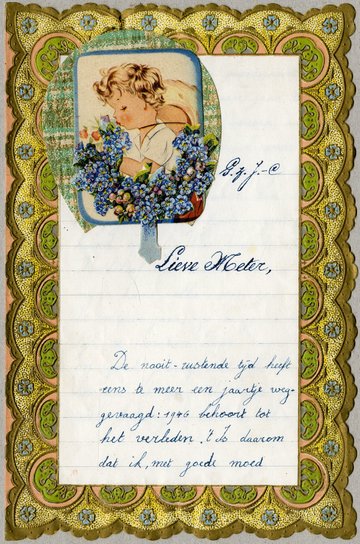 G. z. J.-C
Lieve Meter,
De nooit-rustende tijd heeft
eens te meer een jaartje weg-
gevaagd: 1946 behoort tot
het verleden, 't Is daarom
dat ik, met goede moed